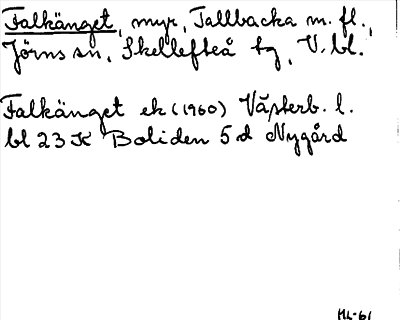 Falkänget, myr, Tallbacka m. fl.,
Jörns sn, Skellefteå tg, V. bl.
Falkänget ek (1960) Västerb. l.
bl 23 K Boliden 5 d Nygård
ML-61